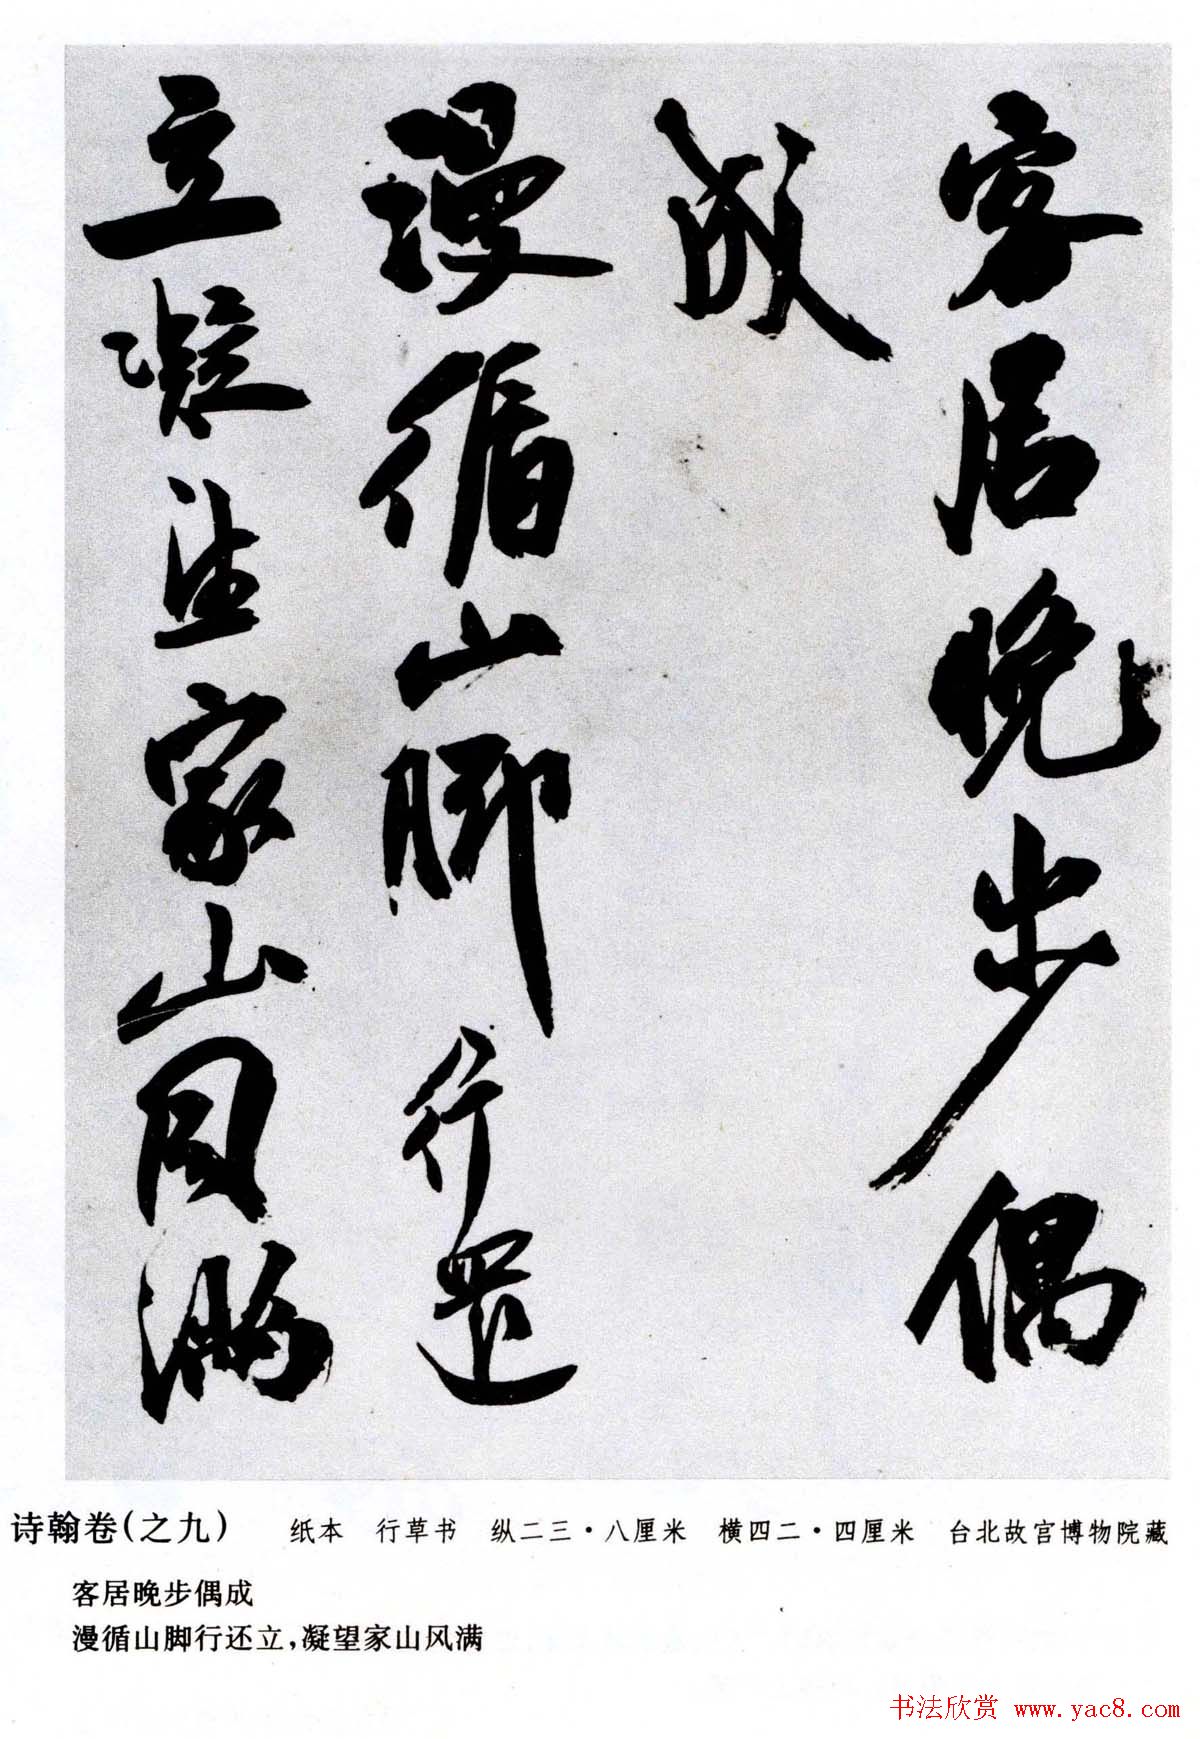 客居晚步偶
成
漫循山脚行還
立凝望家山風滿
诗翰卷(之九) 纸本 行草书 纵二三·八厘米 横四二·四厘米 台北故宫博物院藏
客居晚步偶成
漫循山脚行还立,凝望家山风满
书法欣赏 www.yac8.com